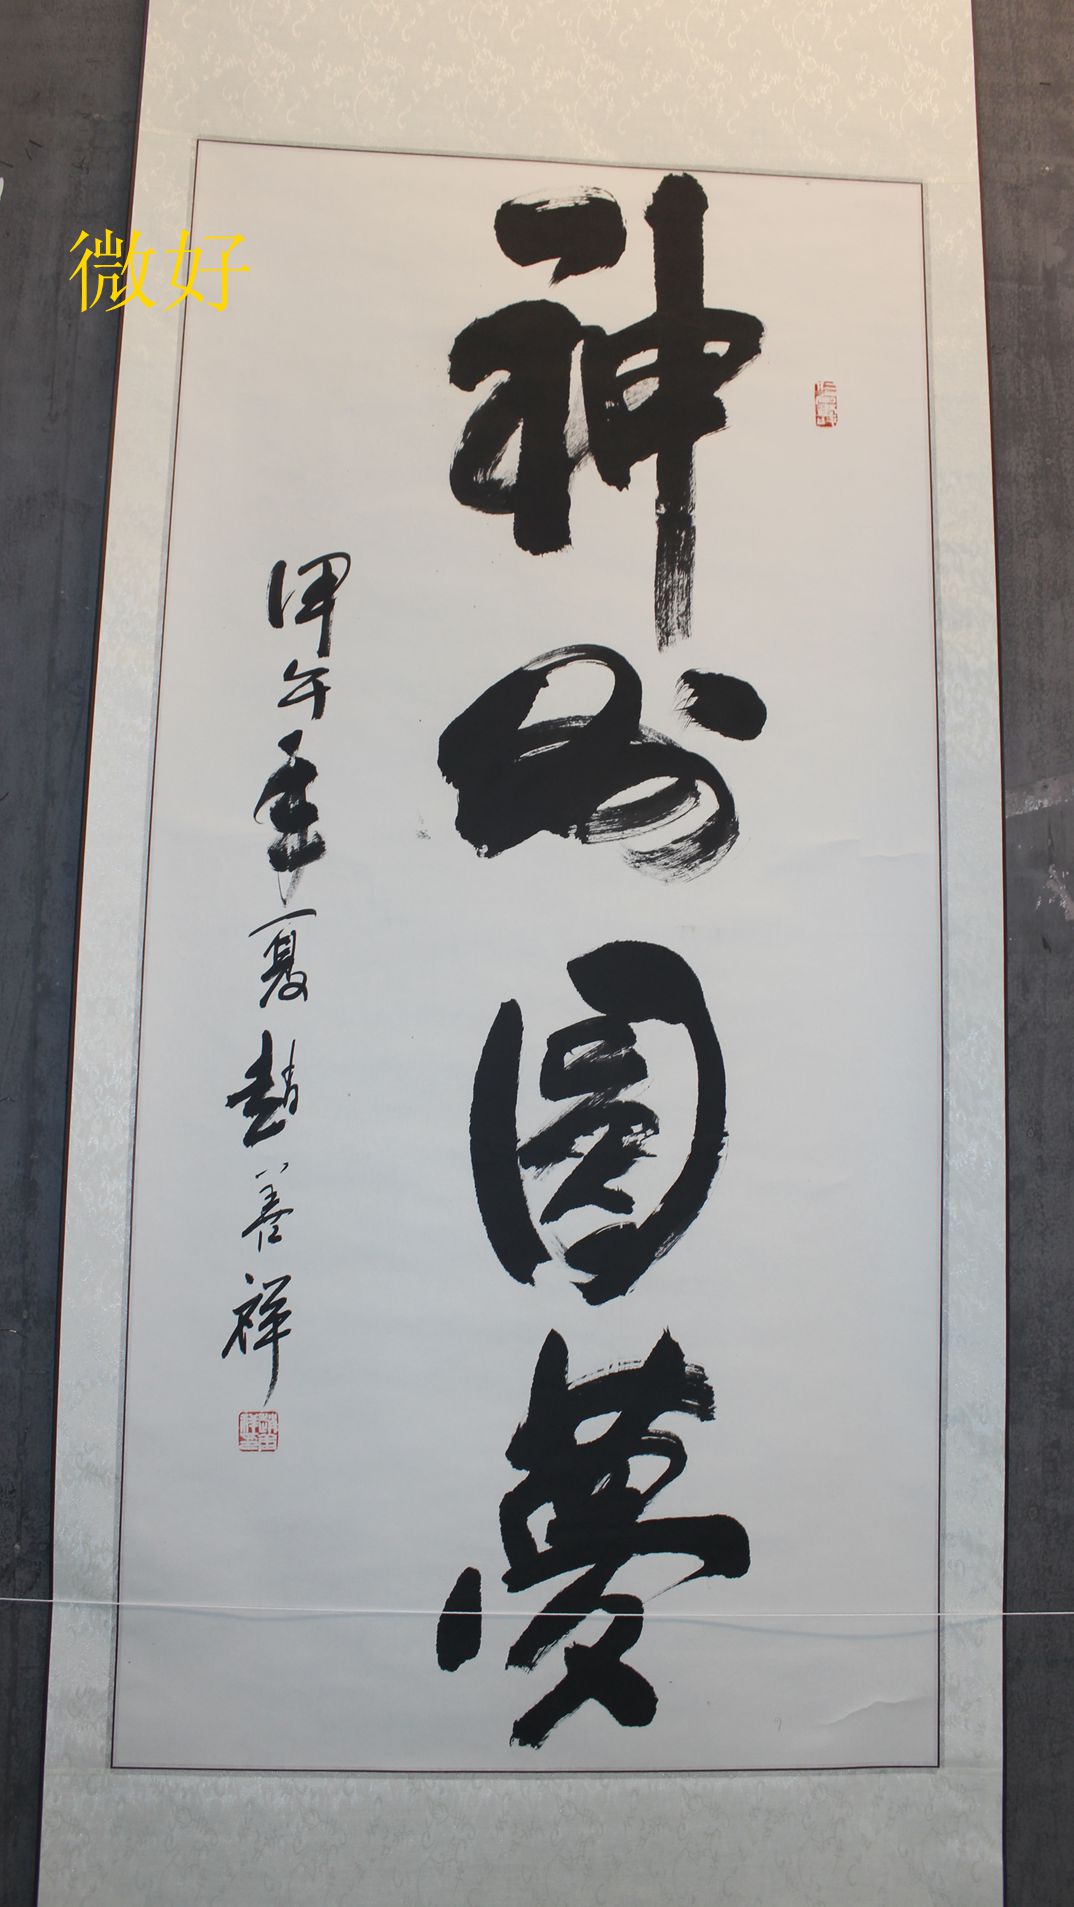 微好
神州圆梦
甲午年夏赵善祥